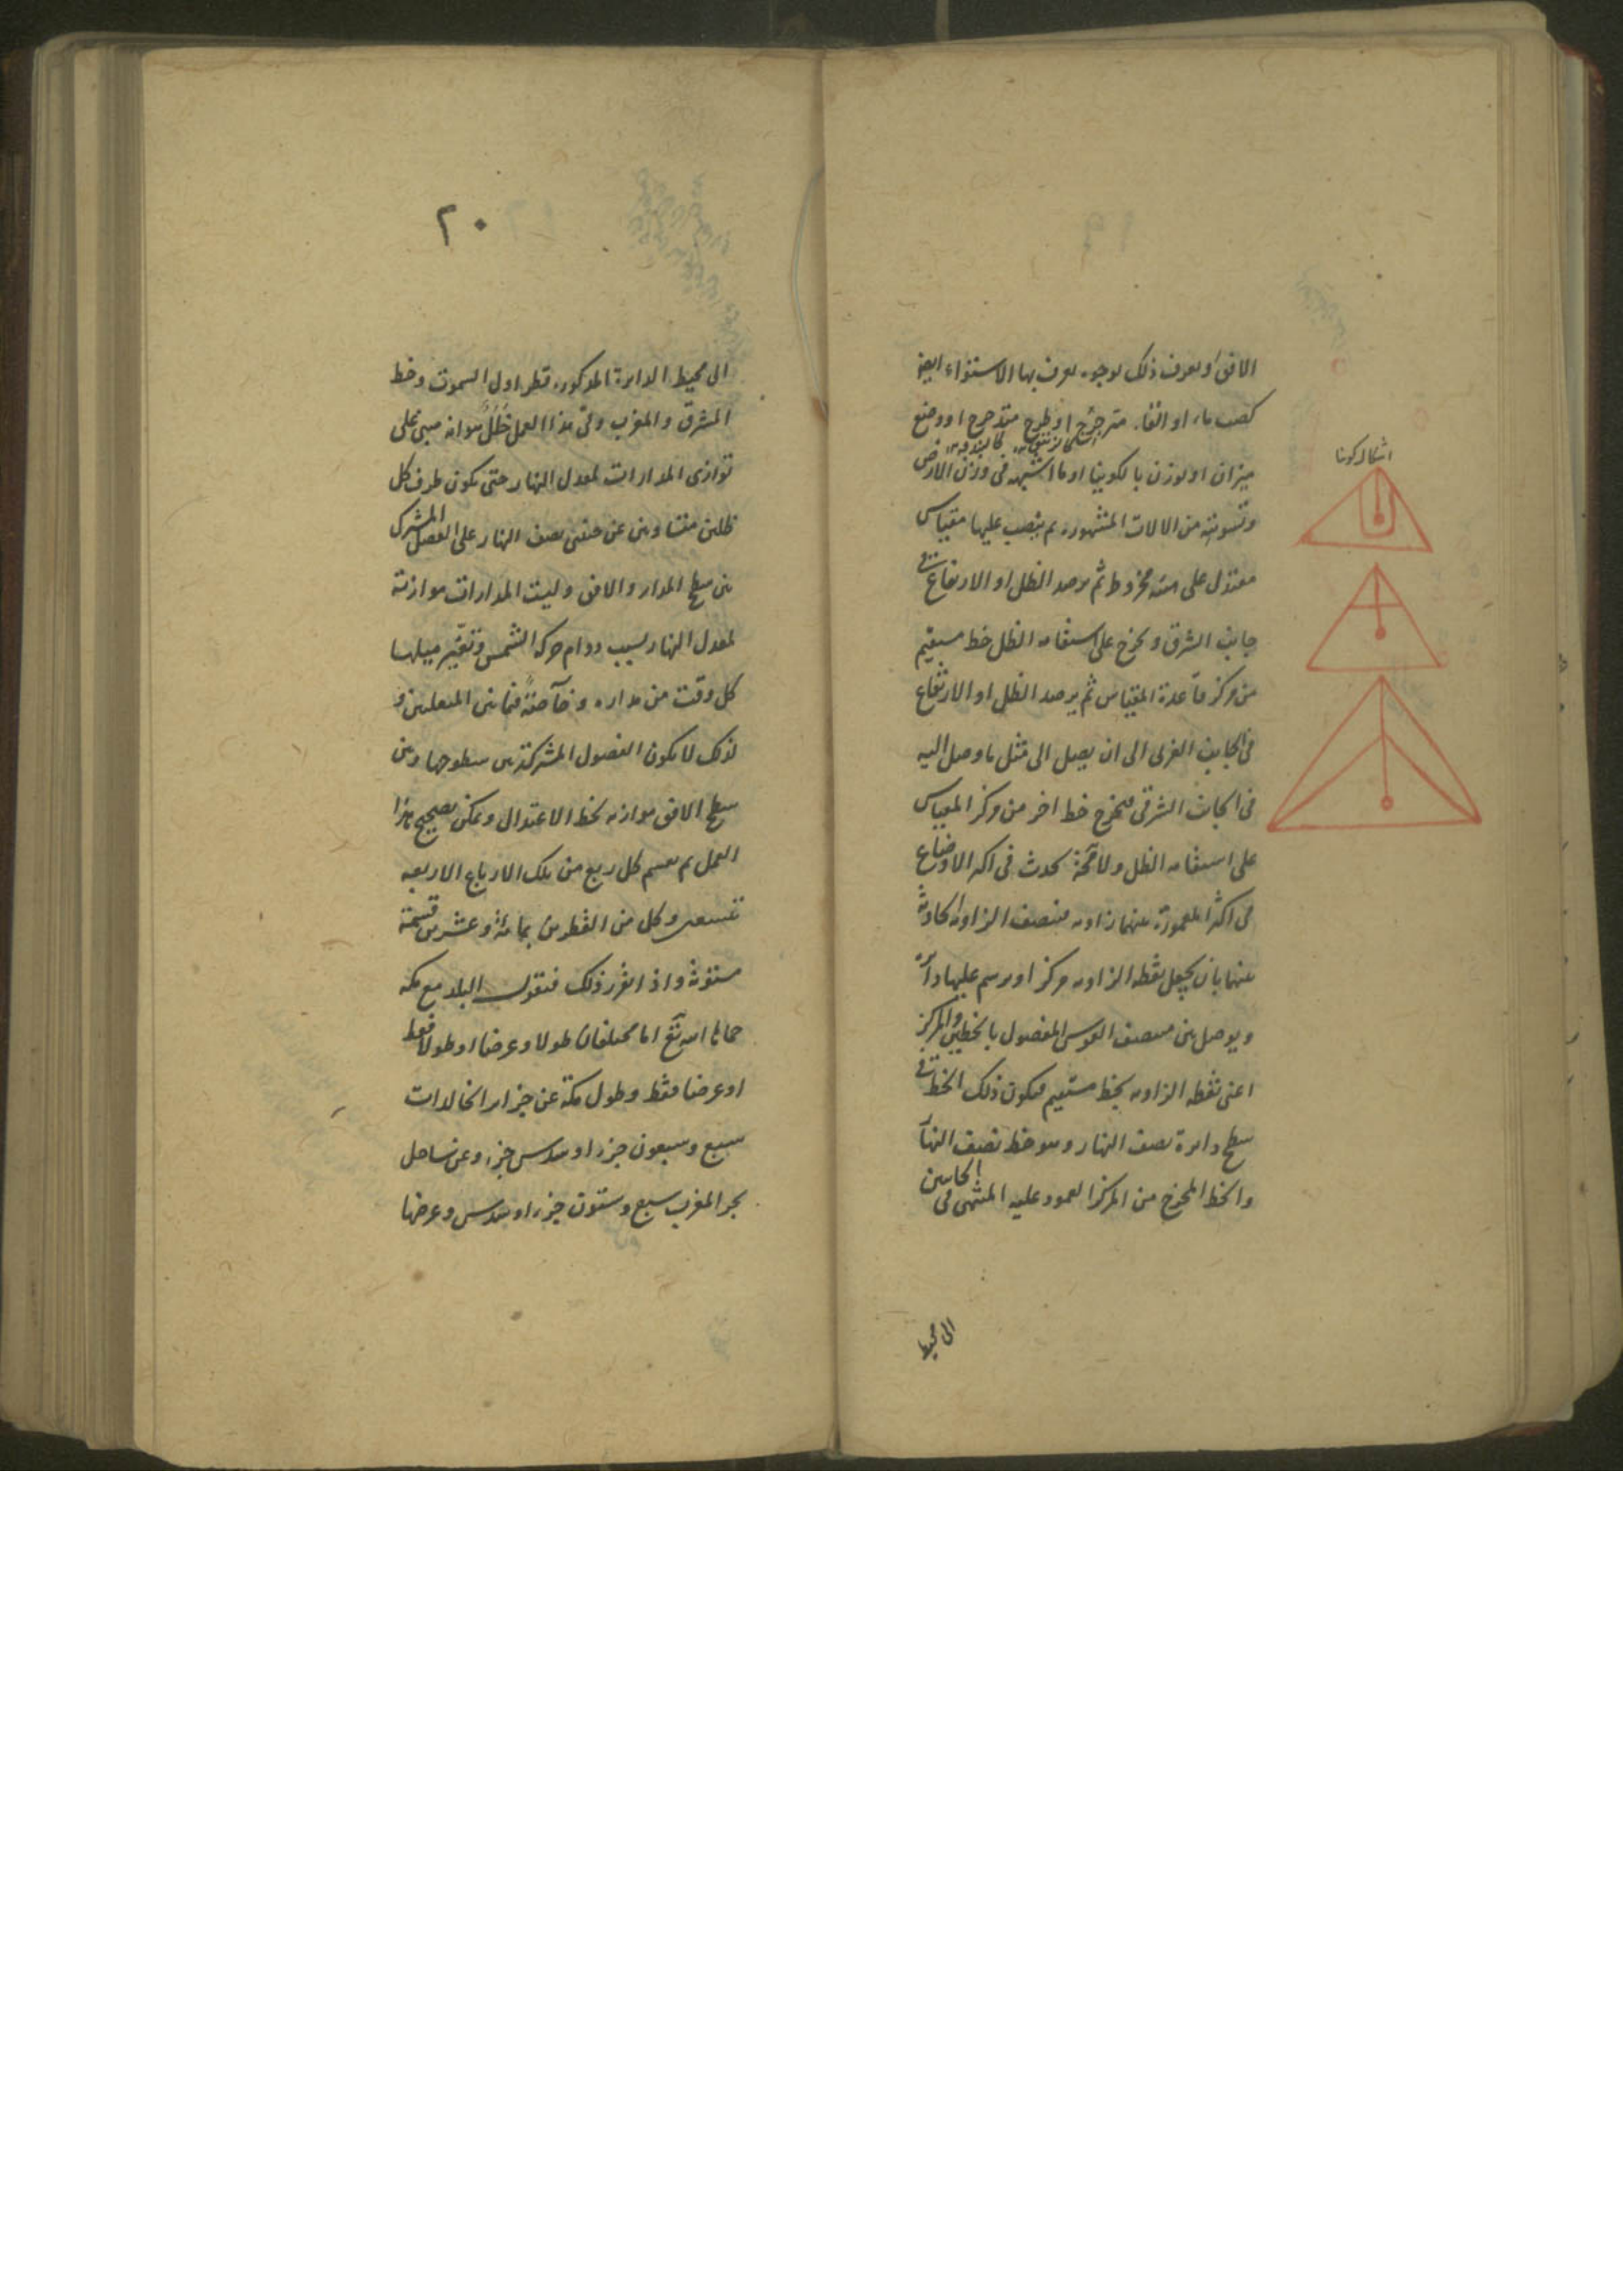 الافق ويعرف ذلك بوجوه يعرف بها الاستواء ايضا
كصب ماء او القاء مترجرج او طرح متدحرج او وضع
كالزئبق كالبندقه
ميزان او بوزن بالكونيا او ما اشبهه فى وزن الارض
وتسويته من الالات المشهوره ثم ينصب عليها مقياس
معتدل على هيئة مخروط ثم يرصد الظل او الارتفاع فى
جانب الشرق ويخرج على استقامه الظل خط مستقيم
من مركز قاعدة المقياس ثم يرصد الظل او الارتفاع
فى الجانب الغربى الى ان يصل الى مثل ما وصل اليه
فى الجانب الشرقى فيخرج خط اخر من مركز المقياس
على استقامه الظل ولا محة يحدث فى اكثر الاوضاع
فى اكثر المعمورة بينهما زاويه فينصف الزاويه الحادثة
بينهما بان يجعل نقطه الزاويه مركزا ويرسم عليها دائره
ويوصل بين منتصف القوس المفصول بالخطين والمركز
اعنى نقطه الزاويه بخط مستقيم فيكون ذلك الخط فى
سطح دائرة نصف النهار وهو خط نصف النهار
والخط المخرج من المركز العمود عليه المنتهى فى الجانبين
الى محيط
اشكال كونيا
٢٠
الى محيط الدائرة المذكوره قطر اول السموت وخط
المشرق والمغرب وفى هذا العمل خلل هو انه مبنى على
توازى المدارات لمعدل النهار حتى يكون طرف كل
ظلين متساويين عن جنبى نصف النهار على الفصل المشترك
بين سطح المدار والافق وليت المدارات موازية
لمعدل النهار بسبب دوام حركه الشمس وتغير ميلها
كل وقت من مداره وخآصة فيما بين المنقلبين و
لذلك لا يكون الفصول المشتركة بين سطوحها وبين
سطح الافق موازيه لخط الاعتدال ويمكن تصحيح هذا
العمل ثم يقسم كل ربع من تلك الارباع الاربعه
تسعين وكل من القطرين بمائة وعشرين قسمة
مستوية واذا تقرر ذلك فنقول البلد مع مكه
حماها الله تع اما مختلفان طولا وعرضا او طولا فقط
او عرضا فقط وطول مكة عن جزاير الخالدات
سبع وسبعون جزءا وسدس جزء وعن ساحل
بحر المغرب سبع وستون جزءا وسدس وعرضها